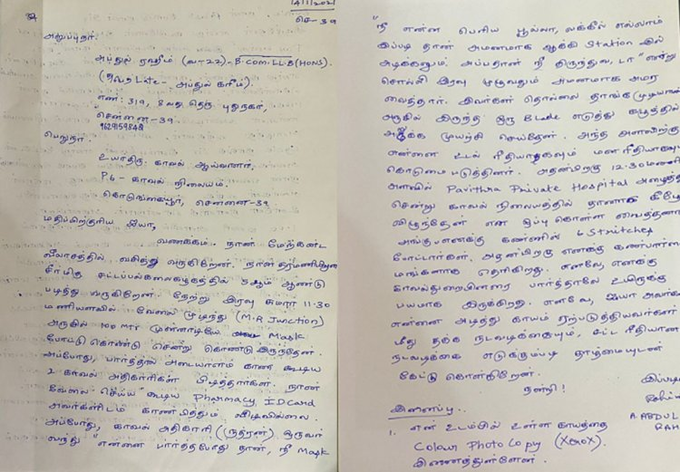 அனுப்புநர்.
அப்துல் ரஹீம் (வ-22)-B.COM.LL.B(HONS).
(த/பெ Late - அப்துல் கரீம்).
எண்: 319, 8வது தெரு புதுநகர்,
சென்னை-39
பெறுநர்.
உயர்திரு. காவல் ஆய்வாளர்.
P6 - காவல் நிலையம்.
கொடுங்கையூர், சென்னை-39
மதிப்பிற்குரிய ஐயா,
வணக்கம். நான் மேற்கண்ட
விலாசத்தில் வசித்து வருகிறேன். நான் தரமணியிலுள்ள
சீர்மிகு சட்டப்பல்கலைகழகத்தில் 5ஆம் ஆண்டு
படித்து வருகிறேன். நேற்று இரவு சுமார் 11.30
மணியளவில் வேலை முடிந்து (M.R Junction)
அருகில் 100 Mtr முன்னாடியே Mask
போட்டு கொண்டு சென்று கொண்டு இருந்தேன்.
அப்போது, பார்த்தால் அடையாளம் காண கூடிய
2 காவல் அதிகாரிகள் பிடித்தார்கள். நான்
வேலை செய்ய கூடிய Pharmacy, ID card
அவர்களிடம் காண்பித்தும் விடவில்லை.
அப்போது, காவல் அதிகாரி (உத்ரன்) ஒருவர்
வந்து "என்னை பார்த்தபோது தான், நீ Mask
"நீ என்ன பெரிய, லக்கீல் எல்லாம்
இப்படி தான் அமனமாக ஆக்கி Station இல்
அடிக்கனும். அப்பதான் நீ திருந்துவ, டா" என்று
சொல்லி இரவு முழுவதும் அமனமாக அமர
வைத்தார். இவர்கள் தொல்லை தாங்க முடியாமல்
அருகில் இருந்த ஒரு Blade எடுத்து கழுத்தில்
அறுக்க முயற்சி செய்தேன். அந்த அளவிற்கு
என்னை உடல் ரீதியாகவும் மன ரீதியாகவும்
கொடுமை படுத்தினர். அதன்பிறகு 12.30 மணி
அளவில் Pavithra Private Hospital அழைத்து
சென்று காவல் நிலையத்தில் நானாக கீழே
விழுந்தேன் என ஒப்பு கொள்ள வைத்தனர்.
அங்கு எனக்கு கண்ணில் 6 Stitches
போட்டார்கள். அதன்பிறகு எனக்கு கண்பார்வை
மங்களாக தெரிகிறது. எனவே, எனக்கு
காவல்துறையினரை பார்த்தாலே உயிருக்கு
பயமாக இருக்கிறது. எனவே, ஐயா அவர்கள்
என்னை அடித்து காயம் ஏற்படுத்தியவர்கள்
மீது தக்க நடவடிக்கையும், சட்ட ரீதியான
நடவடிக்கை எடுக்கும்படி தாழ்மையுடன்
கேட்டு கொள்கிறேன்.
நன்றி!
இப்படி
A. ABDUL
RAH
இணைப்பு.
1. என் உடம்பில் உள்ள காயத்தை
Colour Photo Copy (Xerox).
இணைத்துள்ளேன்.